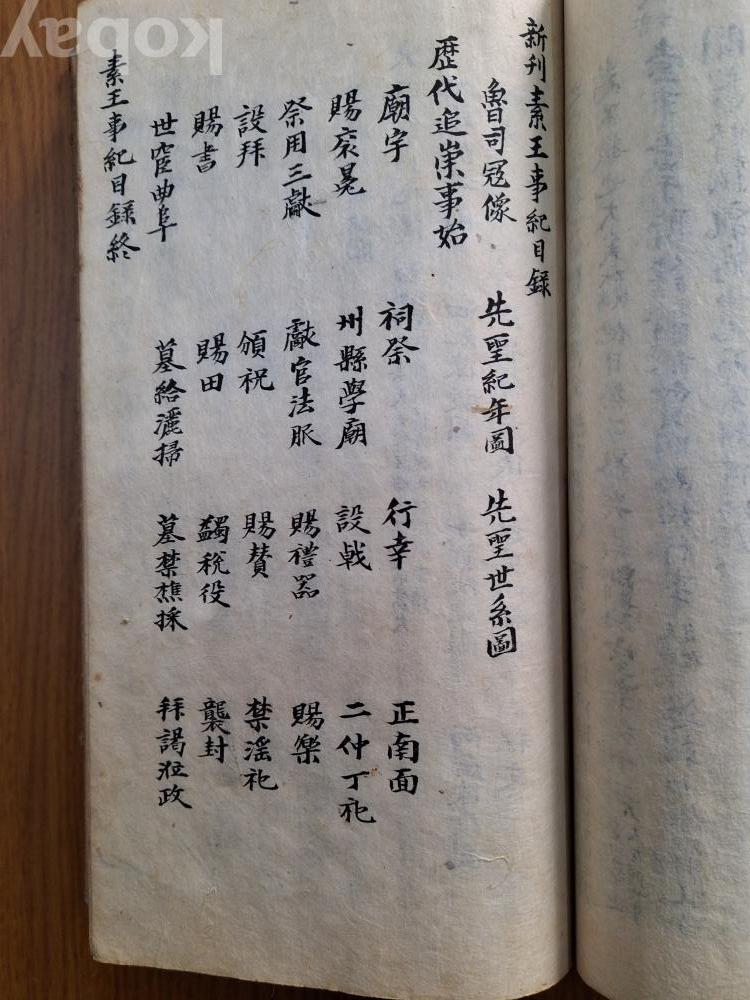 新刊素王事紀目錄
魯司冦像 先聖紀年圖 先聖世系圖
歷代追崇事始
廟宇 祠祭 行幸 正南面
賜衮冕 州縣學廟 設戟 二仲丁祀
祭用三獻 獻官法服 賜禮器 賜樂
設拜 頒祝 賜贊 禁淫祀
賜書 賜田 蠲稅役 襲封
世宦曲阜 墓給灑掃 墓禁樵採 拜謁涖政
素王事紀目錄終
kobay